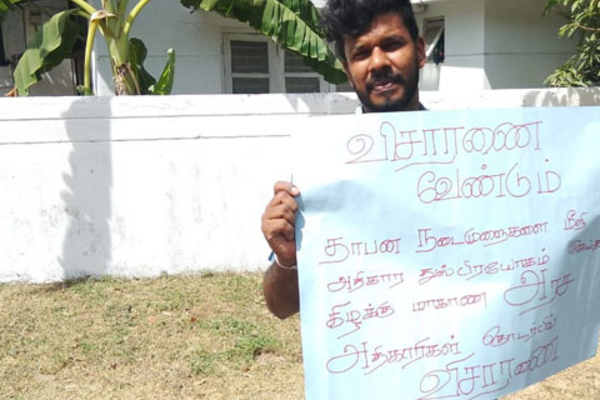 விசாரணை
வேண்டும்
தாபன நடைமுறைகளை மீறி
அதிகார துஸ்பிரயோகம்
கிழக்கு மாகாண அரச
அதிகாரிகள் தொடர்பில்
விசாரணை